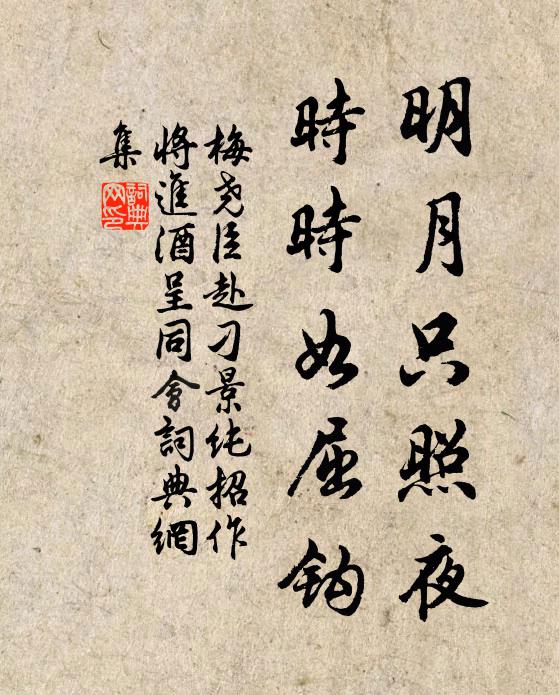 明月只照夜
時時如屈鈎
梅堯臣赴刁景純招作
將進酒呈同會詞典網
集
詞典
网印